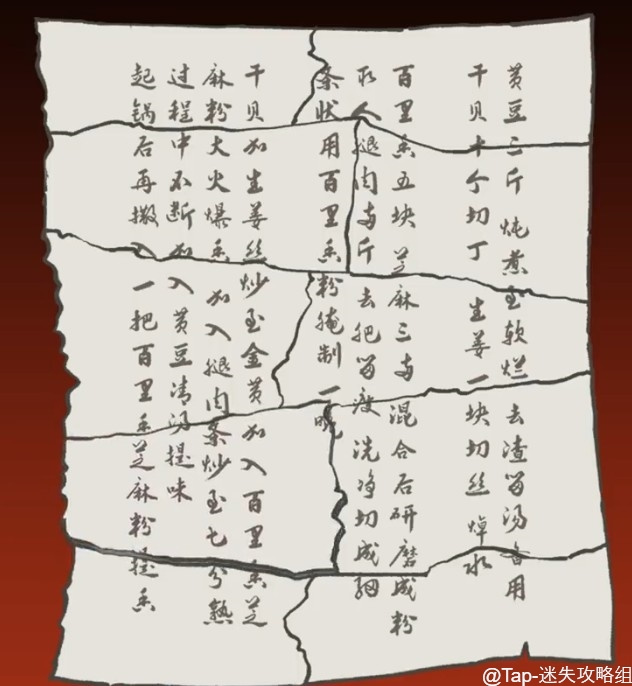 黄豆三斤 炖煮至软烂 去渣留汤备用
干贝十个切丁 生姜一块切丝 焯水
百里香五块 芝麻三两 混合后研磨成粉
取人腿肉两斤 去肥留瘦 洗净切成细
条状用百里香粉腌制一晚
干贝加生姜丝炒至金黄加入百里香芝
麻粉大火爆香 加入腿肉条炒至七分熟
过程中不断加入黄豆清汤提味
起锅后再撒入一把百里香芝麻粉提香
@Tap-迷失攻略组